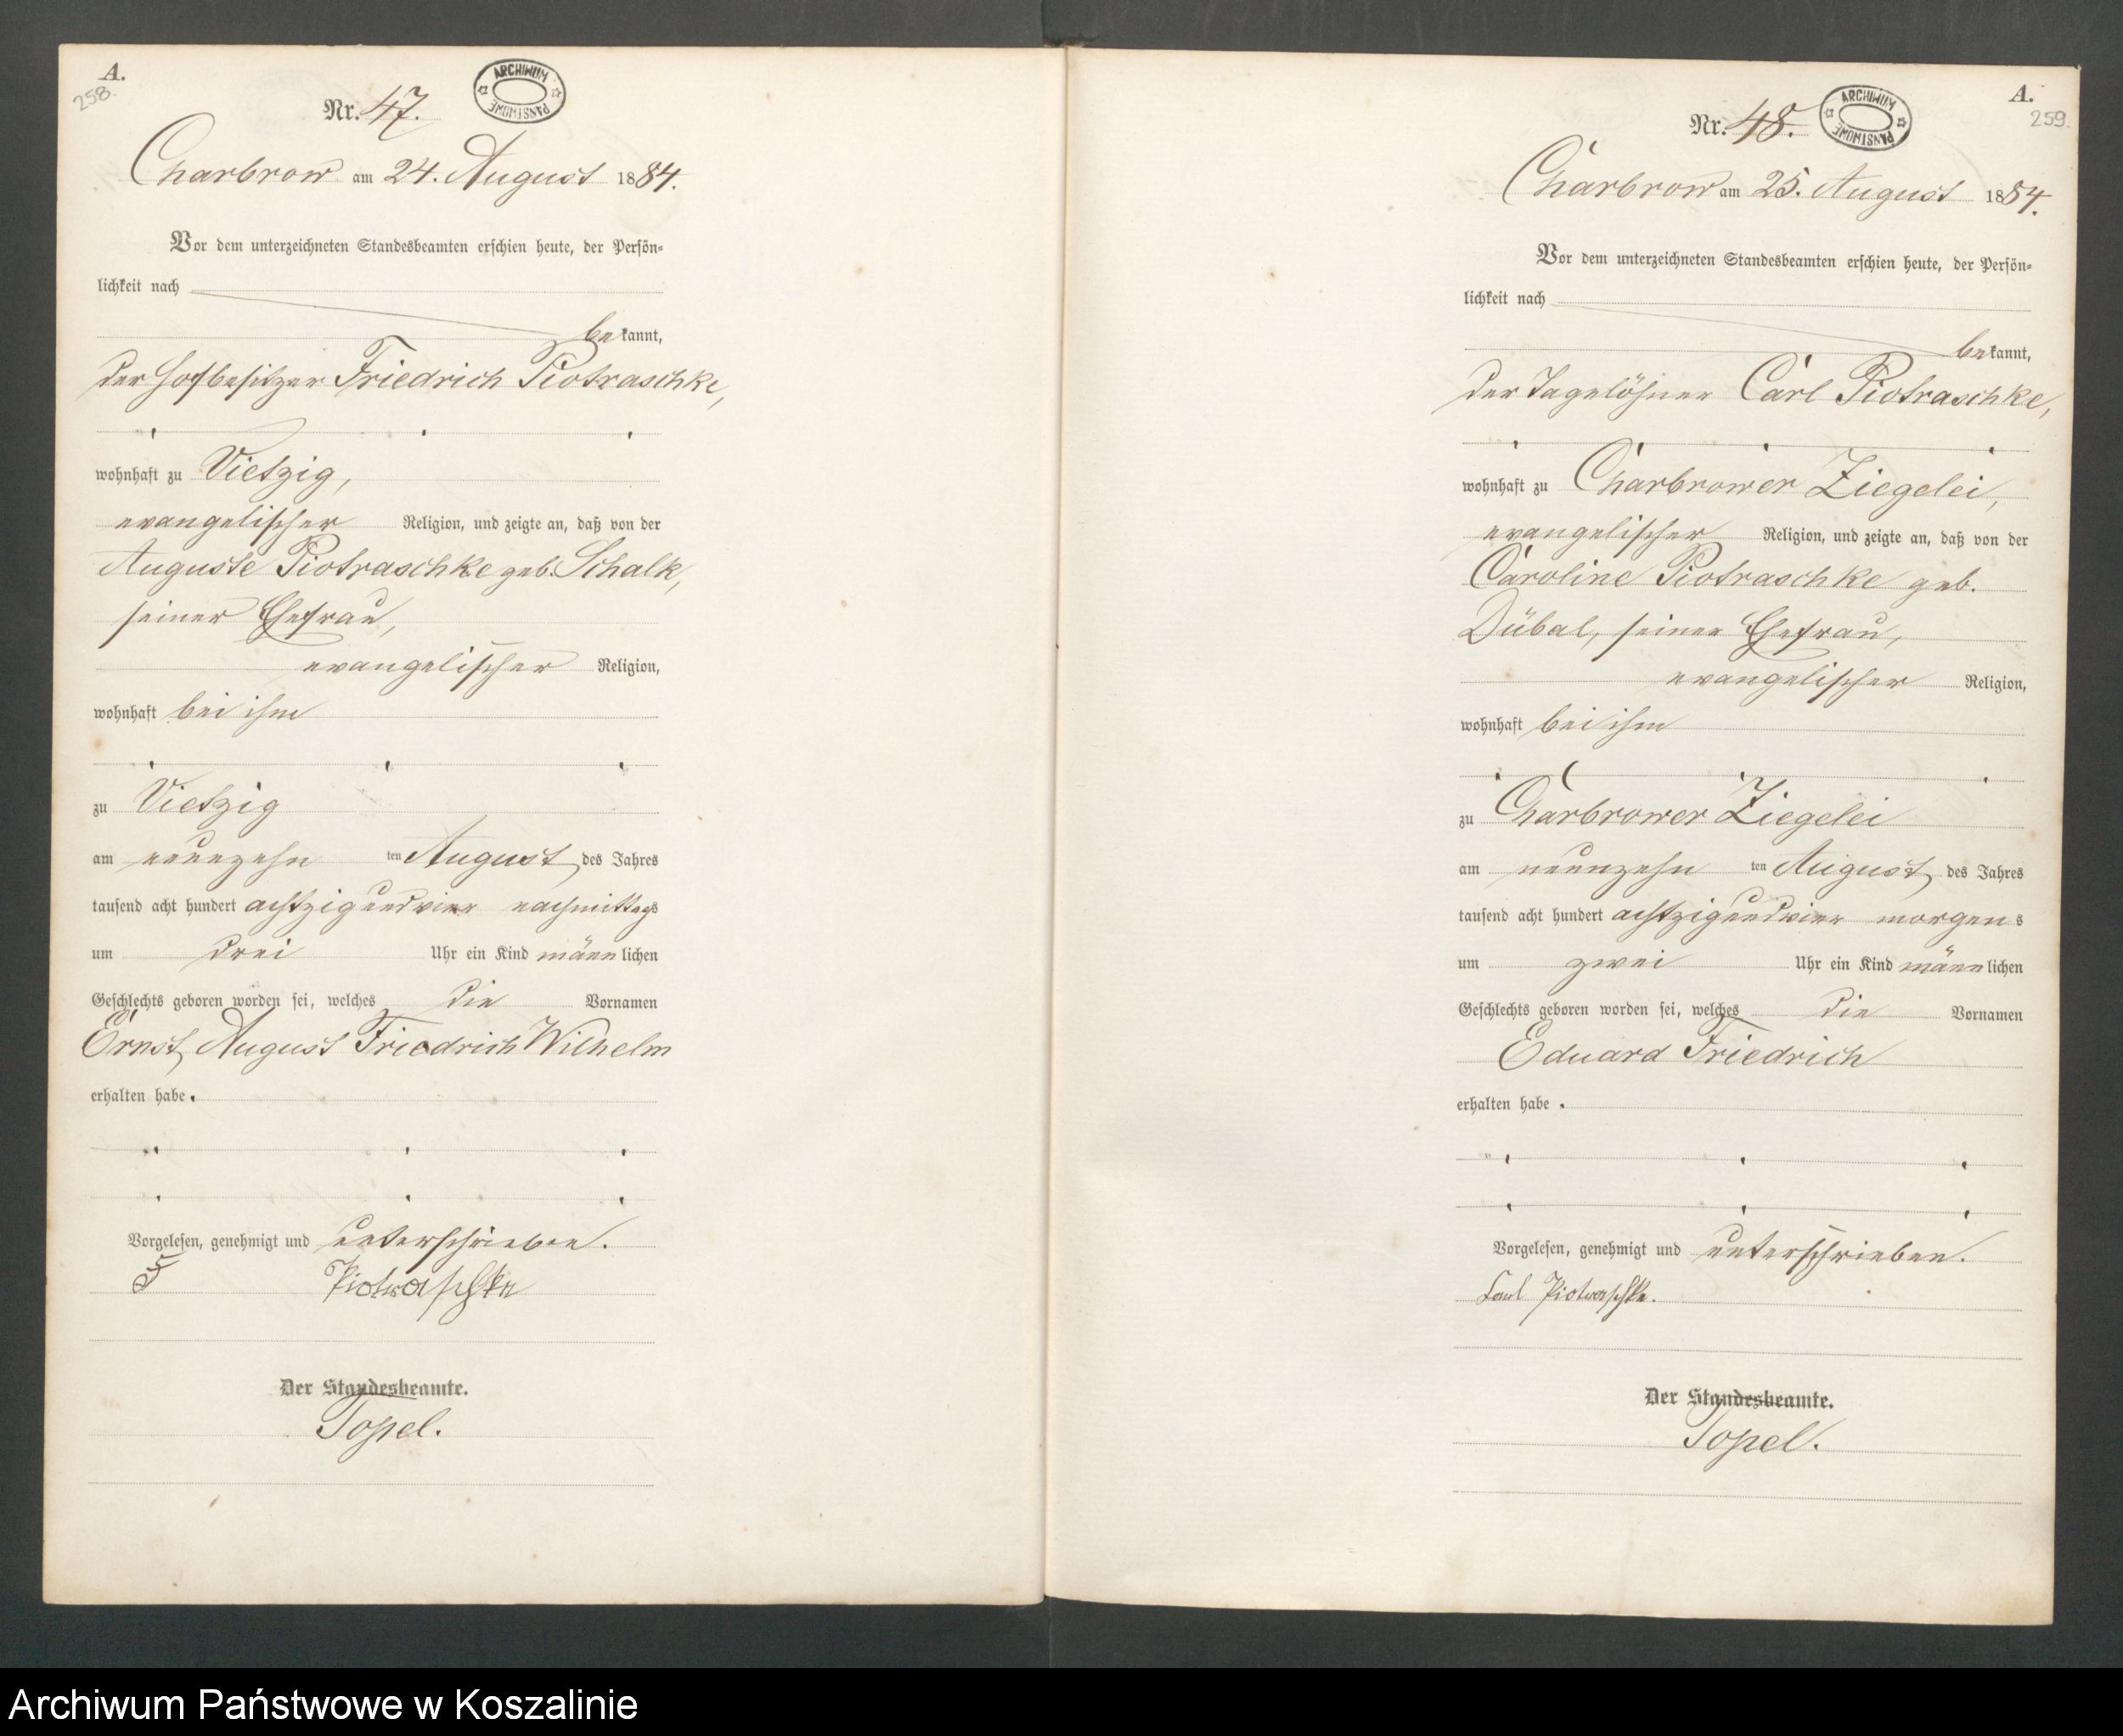 A.
258.
Nr. 47.
ARCHIWUM PAŃSTWOWE
Charbrow am 24. August 1884.
Vor dem unterzeichneten Standesbeamten erschien heute, der Persön-
lichkeit nach
bekannt,
der Hofbesitzer Friedrich Piotraschke,
wohnhaft zu Vietzig,
evangelischer Religion, und zeigte an, daß von der
Auguste Piotraschke geb. Schalk,
seiner Ehefrau,
evangelischer Religion,
wohnhaft bei ihm
zu Vietzig
am neunzehn ten August des Jahres
tausend acht hundert achtzigundvier nachmittags
um drei Uhr ein Kind männlichen
Geschlechts geboren worden sei, welches die Vornamen
Ernst August Friedrich Wilhelm
erhalten habe.
Vorgelesen, genehmigt und unterschrieben.
F Piotraschke
Der Standesbeamte.
Topel.
A.
259.
Nr. 48.
ARCHIWUM PAŃSTWOWE
Charbrow am 25. August 1884.
Vor dem unterzeichneten Standesbeamten erschien heute, der Persön-
lichkeit nach
bekannt,
der Tagelöhner Carl Piotraschke,
wohnhaft zu Charbrower Ziegelei,
evangelischer Religion, und zeigte an, daß von der
Caroline Piotraschke geb.
Dübal, seiner Ehefrau,
evangelischer Religion,
wohnhaft bei ihm
zu Charbrower Ziegelei
am neunzehn ten August des Jahres
tausend acht hundert achtzigundvier morgens
um zwei Uhr ein Kind männlichen
Geschlechts geboren worden sei, welches die Vornamen
Eduard Friedrich
erhalten habe.
Vorgelesen, genehmigt und unterschrieben.
Carl Piotraschke.
Der Standesbeamte.
Topel.
Archiwum Państwowe w Koszalinie